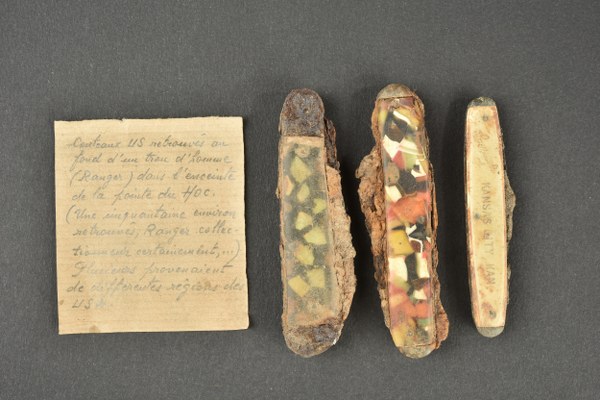 Couteaux US retrouvés au
fond d'un trou d'homme
(Ranger) dans l'enceinte
de la pointe du Hoc.
(Une cinquantaine environ
retrouvés, Ranger collec-
tionneur certainement,...)
Plusieurs provenaient
de différentes régions des
US
KANSAS CITY KAN